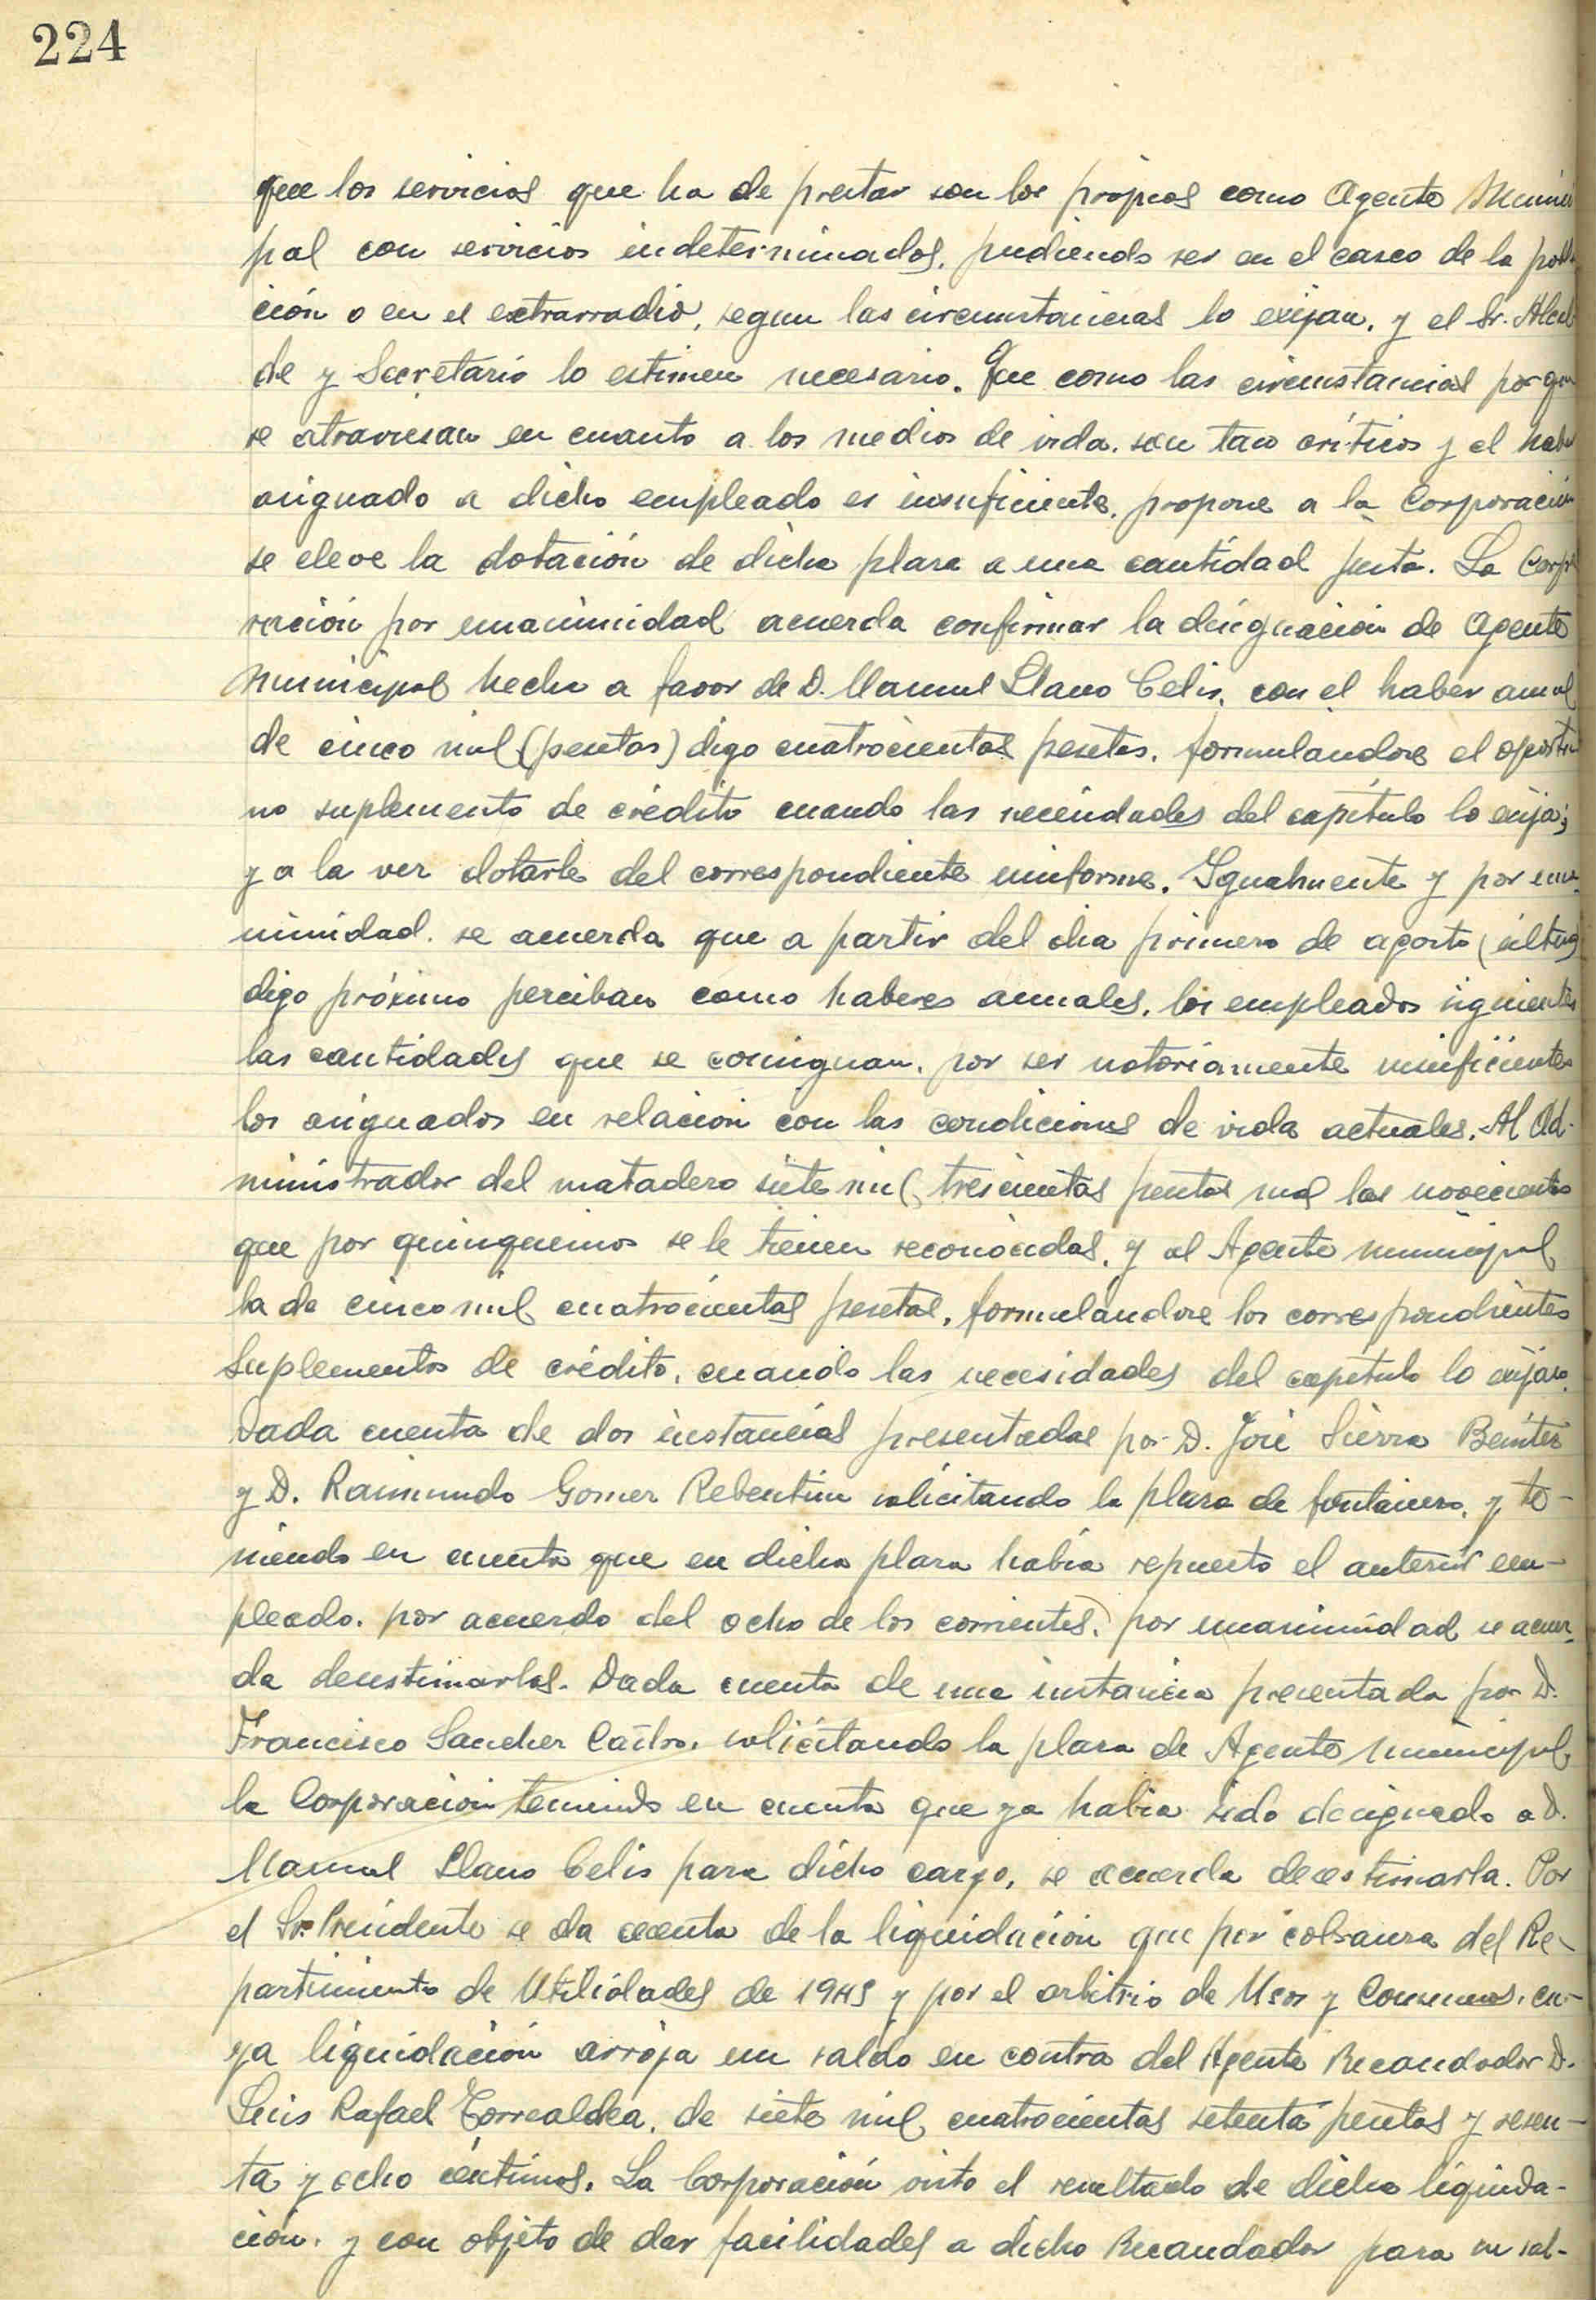 224
que los servicios que ha de prestar son los propios como Agente Munici
pal con servicios indeterminados, pudiendo ser en el casco de la pobla
ción o en el extrarradio, segun las circunstancias lo exijan, y el Sr. Alcal
de y Secretario lo estimen necesario. Que como las circunstancias por que
se atraviesan en cuanto a los medios de vida, son tan críticos y el haber
asignado a dicho empleado es insuficiente, propone a la Corporación
se eleve la dotación de dicha plaza a una cantidad justa. La Corpo
ración por unanimidad acuerda confirmar la designación de Agente
Municipal hecha a favor de D. Manuel Llano Celis, con el haber anual
de cinco mil (pesetas) digo cuatrocientas pesetas, formulandose el oportu
no suplemento de crédito cuando las necesidades del capítulo lo exija;
y a la vez dotarle del correspondiente uniforme. Igualmente y por una
nimidad, se acuerda que a partir del dia primero de agosto (último)
digo próximo perciban como haberes anuales, los empleados siguientes
las cantidades que se consignan, por ser notoriamente insuficientes
los asignados en relación con las condiciones de vida actuales. Al Ad-
ministrador del matadero siete mil trescientas pesetas mas las novecientas
que por quinquenios se le tienen reconocidas, y al Agente municipal
la de cinco mil cuatrocientas pesetas, formulandose los correspondientes
Suplementos de crédito, cuando las necesidades del capítulo lo exijan.
Dada cuenta de dos instancias presentadas por D. José Sierra Benítez
y D. Raimundo Gomez Rebentun solicitando la plaza de fontanero, y te-
niendo en cuenta que en dicha plaza había repuesto el anterior em-
pleado, por acuerdo del ocho de los corrientes, por unanimidad se acuer-
da desestimarlas. Dada cuenta de una instancia presentada por D.
Francisco Sanchez Castro, solicitando la plaza de Agente municipal,
la Corporacion teniendo en cuenta que ya habia sido designado a D.
Manuel Llano Celis para dicho cargo, se acuerda desestimarla. Por
el Sr. Presidente se da cuenta de la liquidación que por cobranza del Re-
partimiento de Utilidades de 1945 y por el arbitrio de Usos y Consumos, cu-
ya liquidación arroja un saldo en contra del Agente Recaudador D.
Luis Rafael Torrealdea, de siete mil cuatrocientas setenta pesetas y sesen-
ta y ocho céntimos. La Corporación visto el resultado de dicha liquida-
ción, y con objeto de dar facilidades a dicho Recaudador para su sal-